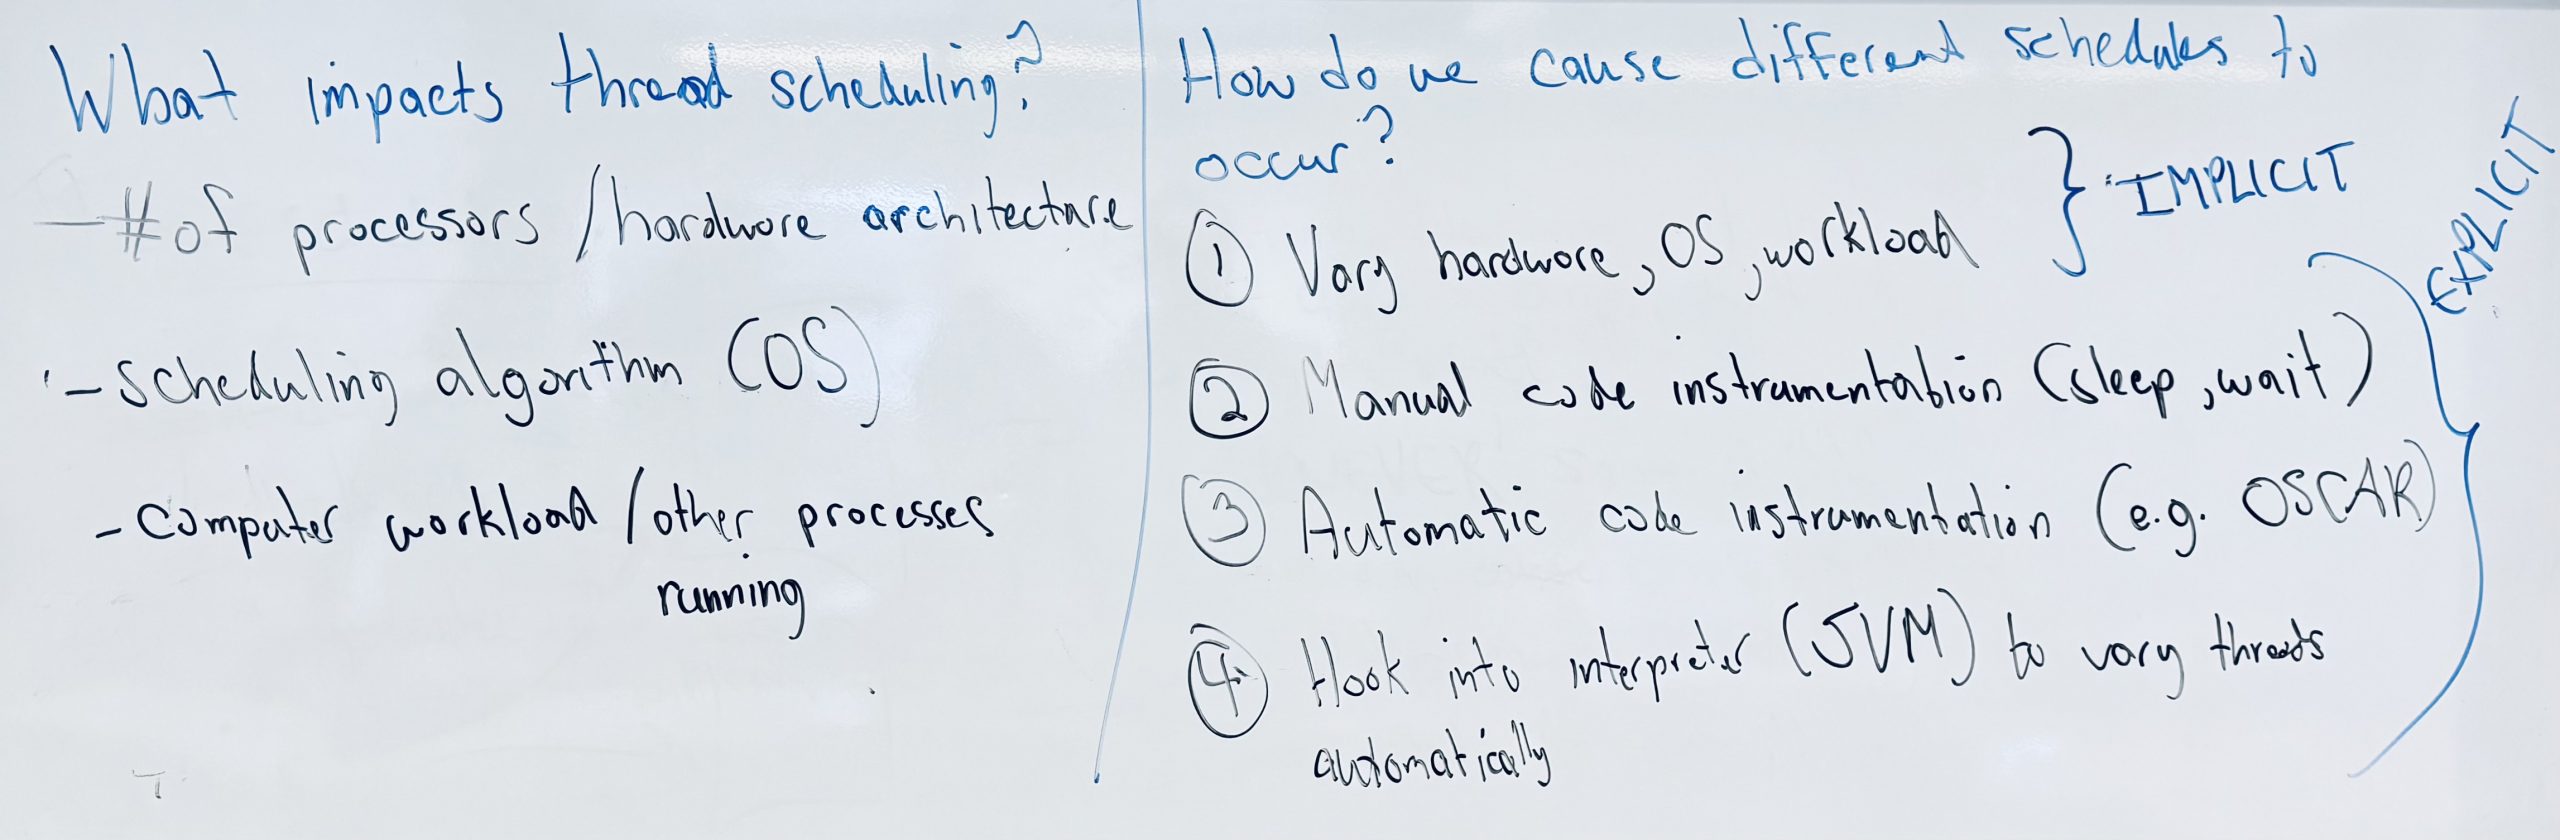 What impacts thread scheduling?
- # of processors / hardware architecture
- scheduling algorithm (OS)
- computer workload / other processes
running
How do we cause different schedules to
occur?
① Vary hardware, OS, workload
} IMPLICIT
② Manual code instrumentation (sleep, wait)
③ Automatic code instrumentation (e.g. OSCAR)
④ Hook into interpreter (JVM) to vary threads
automatically
} EXPLICIT